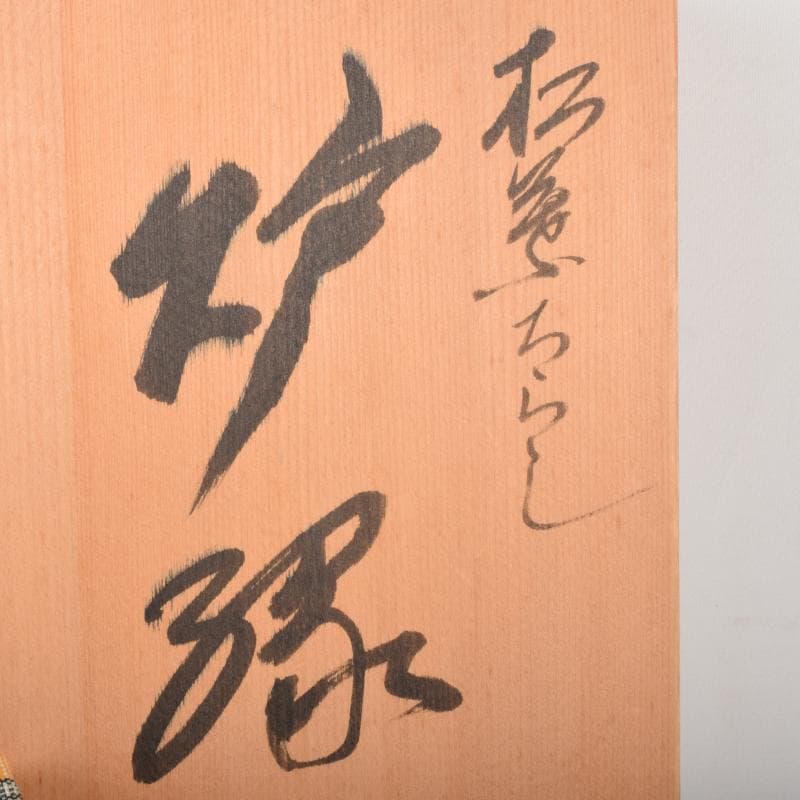 松葉ちらし
炉縁